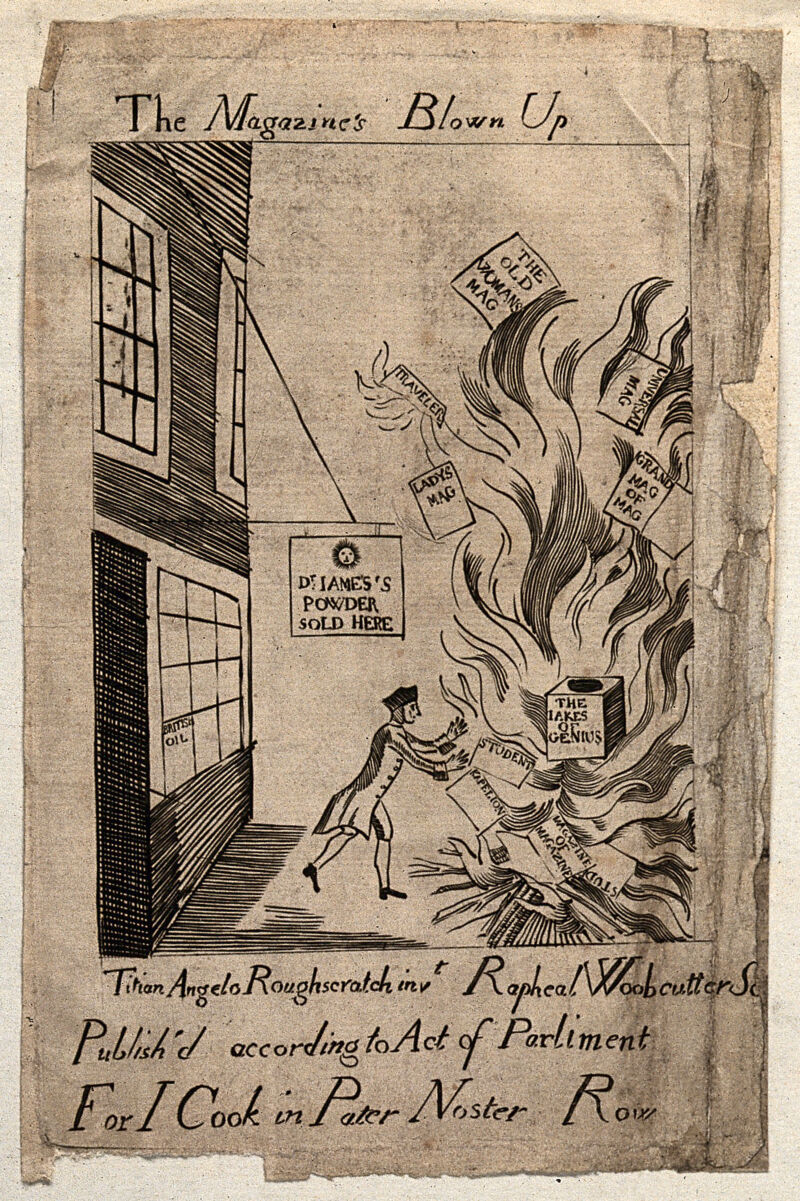 The Magazine's Blown Up
THE
OLD
WOMANS
MAG
TRAVELER
UNIVERSAL
MAG
LADYS
MAG
GRAND
MAG
OF
MAG
Dr. IAMES'S
POWDER
SOLD HERE
THE
IAKES
OF
GENIUS
BRITISH
OIL
STUDENT
MAGAZINE
OF
MAGAZINE
Titian Angelo Roughscratch invt Rapheal Woobcutter Sc
Publish'd according to Act of Parliment
For I Cook in Pater Noster Row